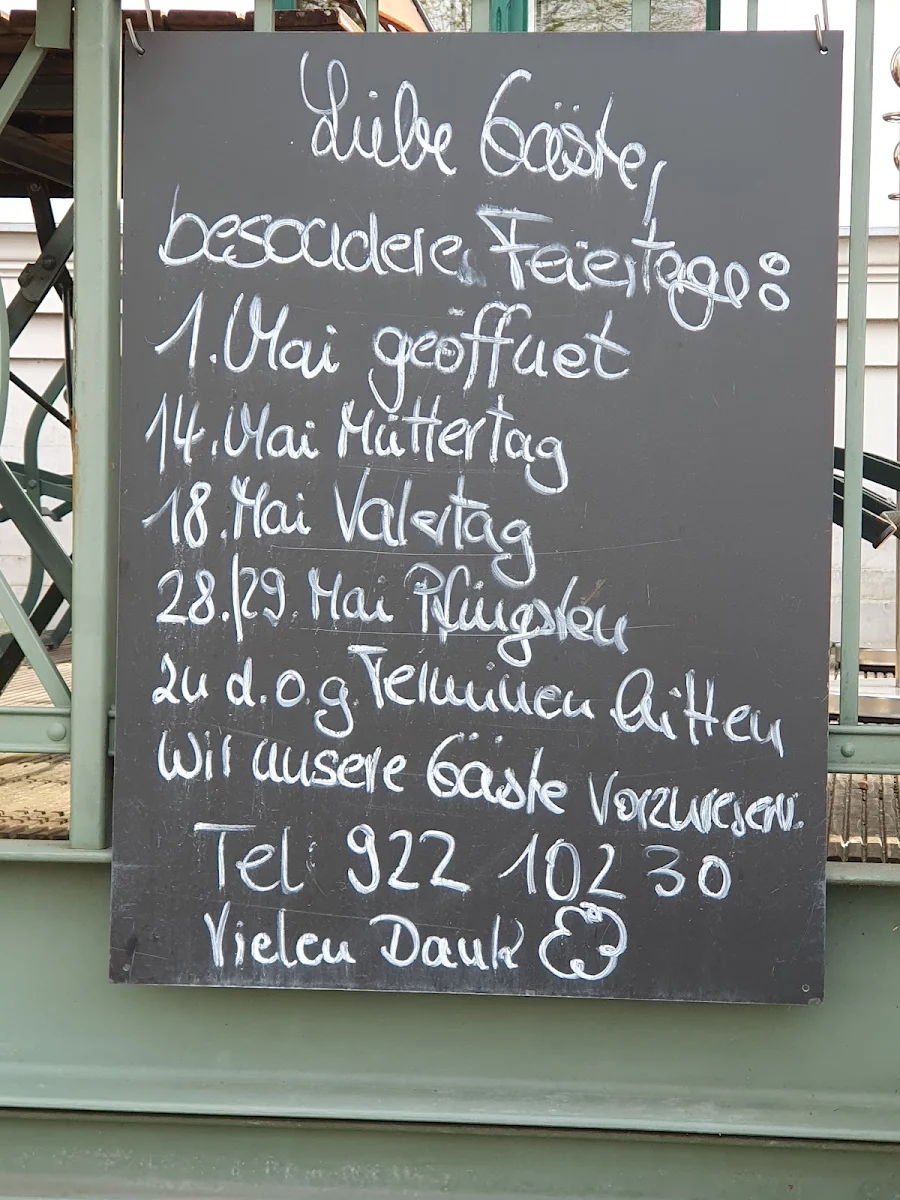 Liebe Gäste,
besondere Feiertage:
1. Mai geöffnet
14. Mai Müttertag
18. Mai Vatertag
28./29. Mai Pfingsten
zu d.o.g. Terminen bitten
wir unsere Gäste Vorzureserv.
Tel 922 102 30
Vielen Dank